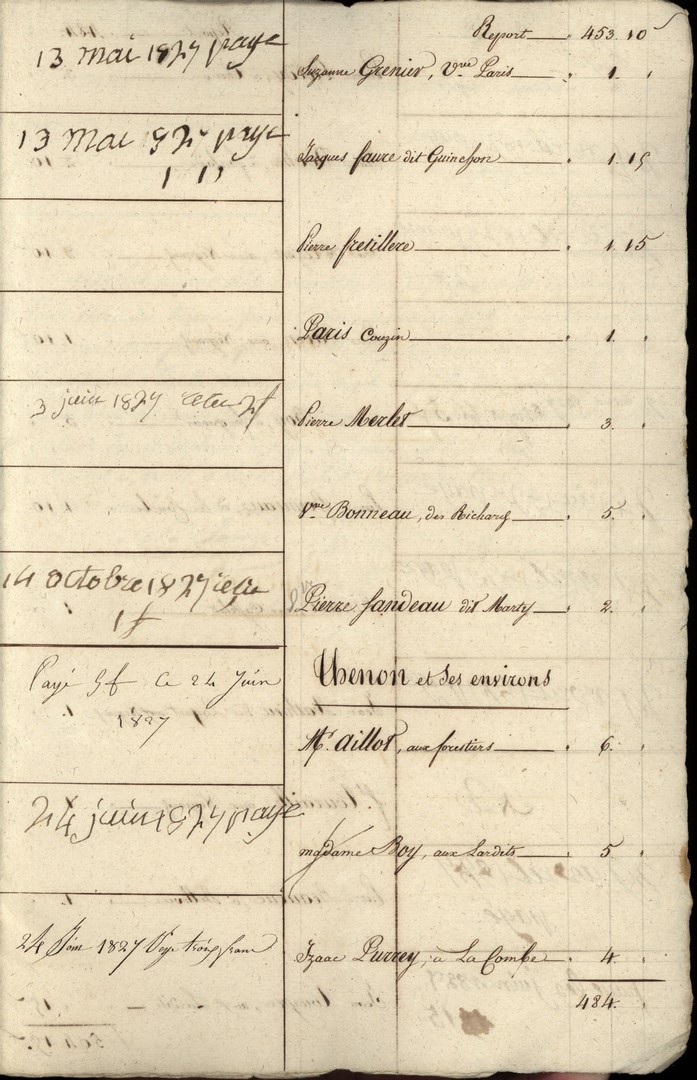 Report 453. 10
13 mai 1827 paye
Suzanne Grenier, Vve Paris 1.
13 mai 827 paye
1 15
Jacques faure dit Guinchon 1. 15
Pierre fretillere 1. 15
Paris Couzin 1.
3 juin 1827 recu 2f
Pierre Merlet 3.
Vve Bonneau, des Richard 5.
14 octobre 1827 recu
1f
Pierre fandeau dit Marty 2.
Thenon et ses environs
Payé 5f Ce 24 Juin
1827
Mr. aillot, aux forestiers 6.
24 juin 1827 paye
madame Boy, aux Lardits 5
24 Juin 1827 trois franc
Izaac Purrey, à La Combe 4.
484.